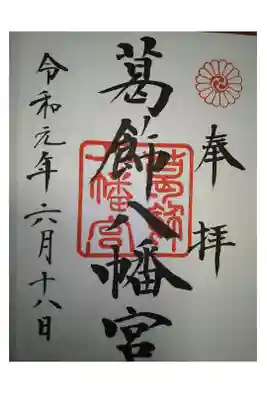 奉拝
葛飾八幡宮
葛飾八幡宮
令和元年六月十八日